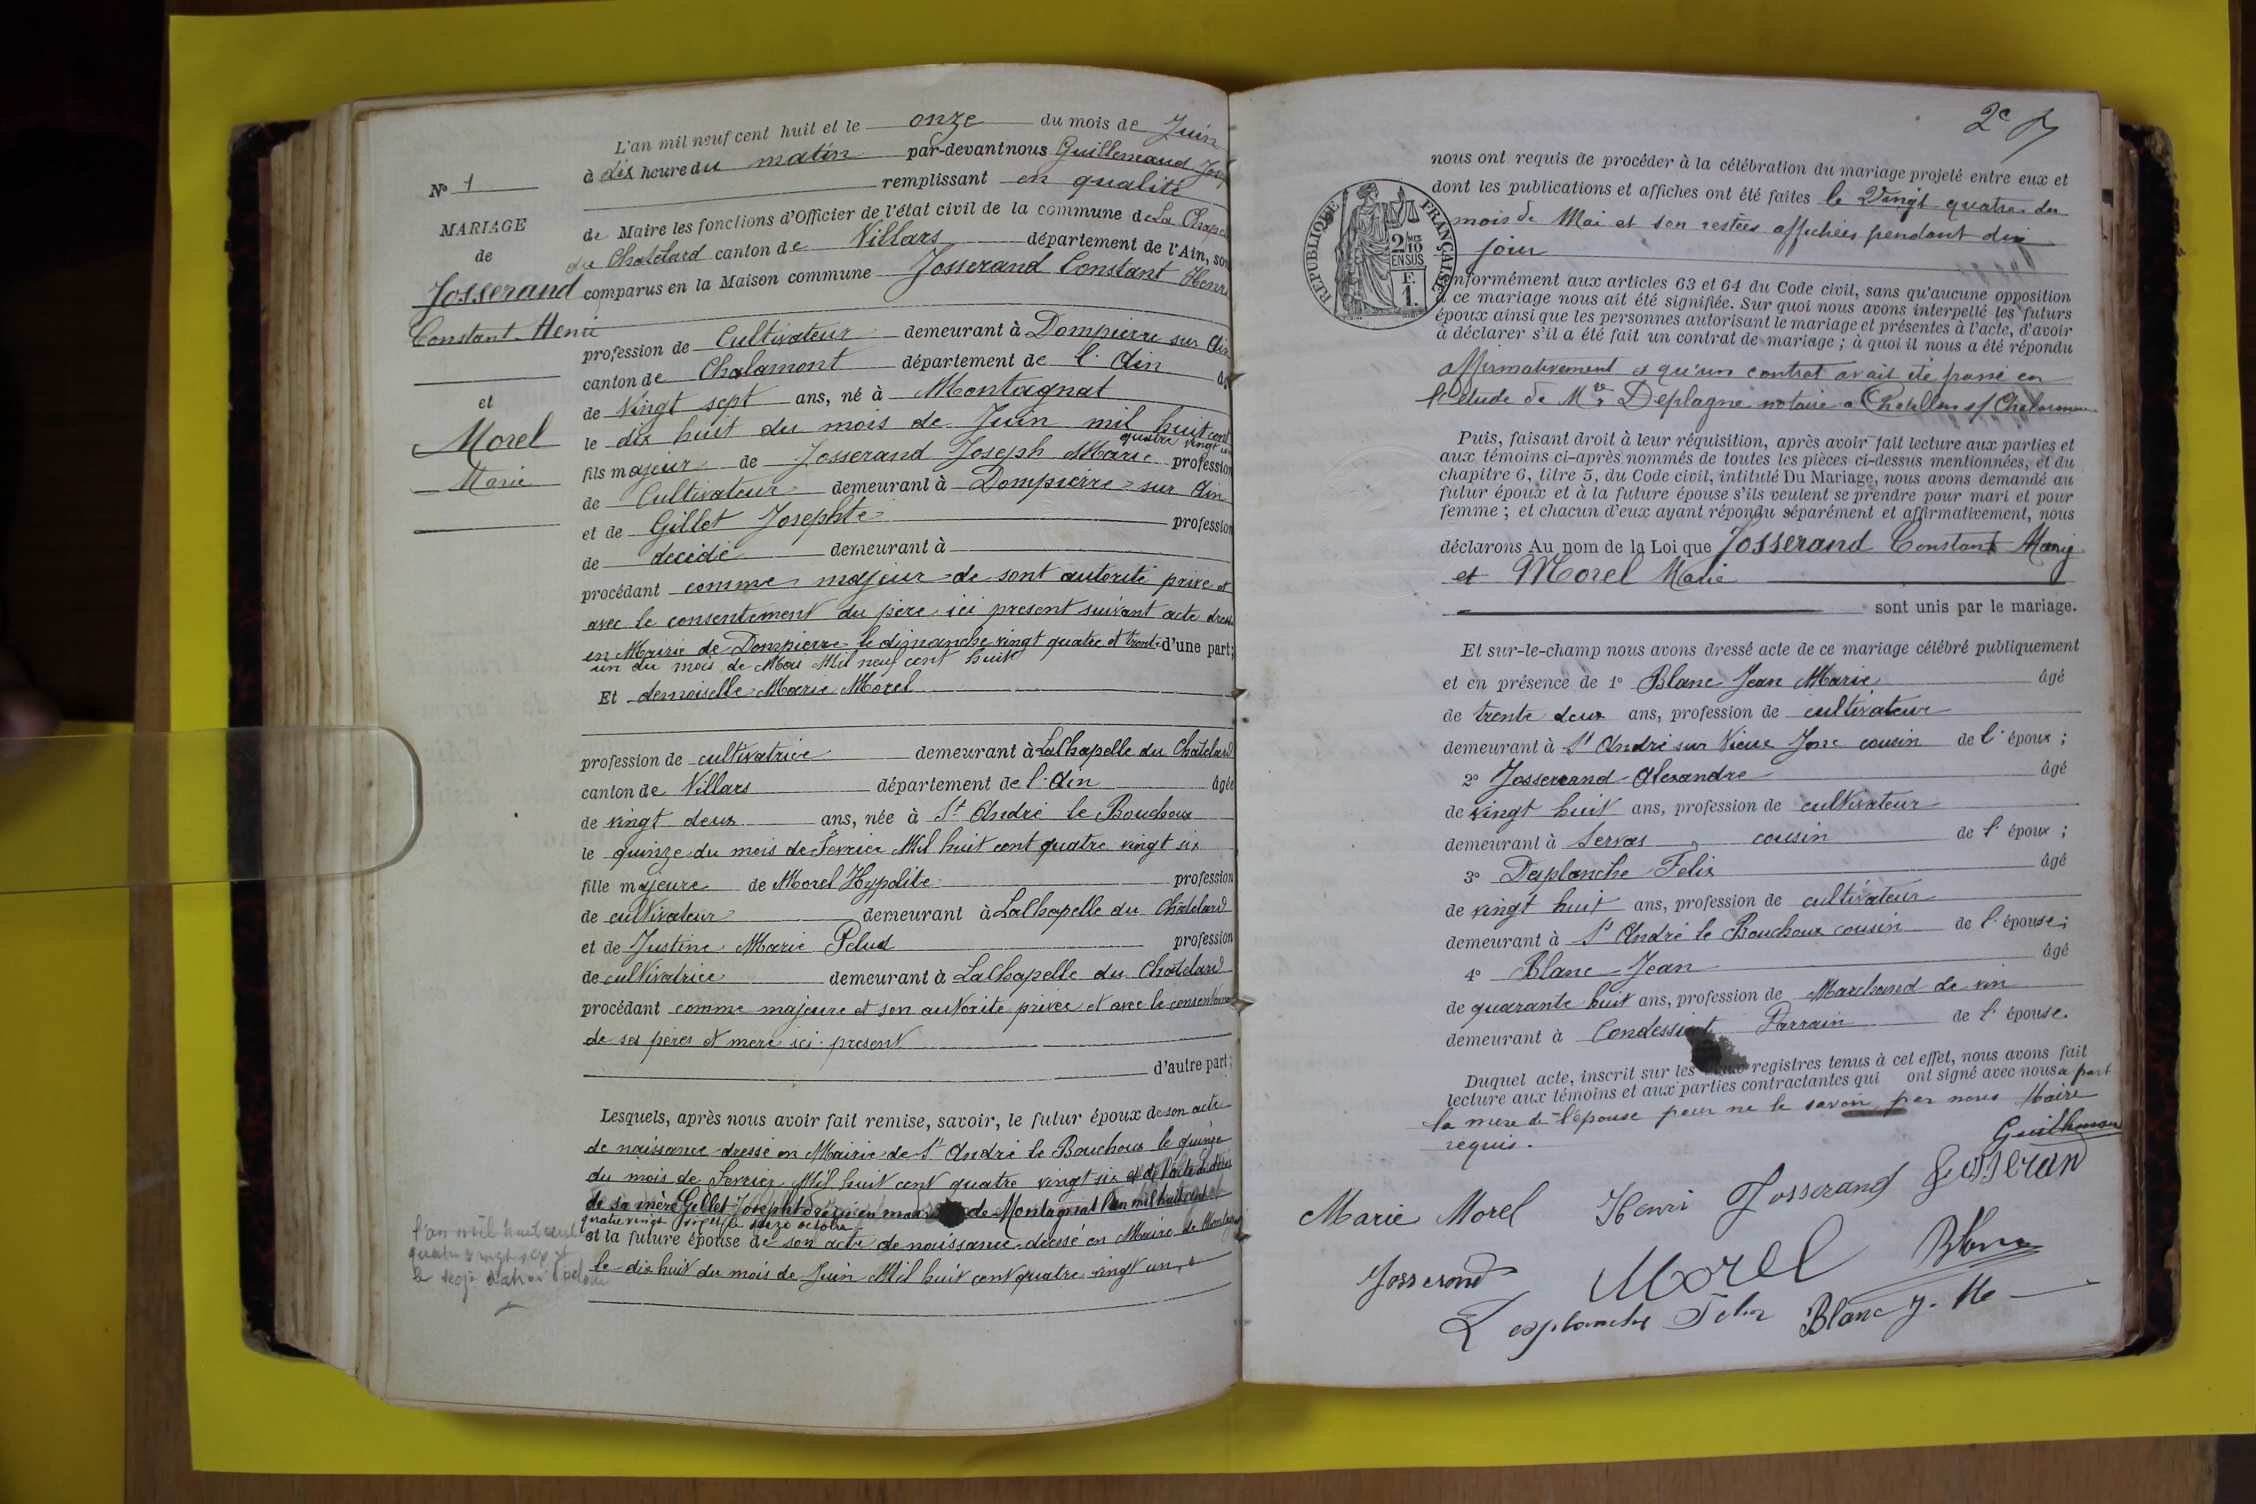 L'an mil neuf cent huit et le onze du mois de Juin
à dix heure du matin par-devant nous Guillemaud
remplissant en qualité
de Maire les fonctions d'Officier de l'état civil de la commune de La Chapelle
du Chatelard canton de Villars département de l'Ain, sont
comparus en la Maison commune Josserand Constant Henri
profession de Cultivateur demeurant à Dompierre sur Ain
canton de Chalamont département de l'Ain
de Vingt sept ans, né à Montagnat
le dix huit du mois de Juin mil huit cent
quatre vingt un
fils majeur de Josserand Joseph Marie profession
de Cultivateur demeurant à Dompierre sur Ain
et de Gillet Josephte profession
de decidé demeurant à
procédant comme majeur de sont autorité privé et
avec le consentement du père ici present suivant acte dressé
en Mairie de Dompierre le dimanche vingt quatre et trente d'une part;
un du mois de Mai Mil neuf cent huit
Et demoiselle Marie Morel
profession de cultivatrice demeurant à La Chapelle du Chatelard
canton de Villars département de l'Ain âgée
de vingt deux ans, née à St André le Bouchoux
le quinze du mois de Fevrier Mil huit cent quatre vingt six
fille majeure de Morel Hypolite profession
de cultivateur demeurant à La Chapelle du Chatelard
et de Justine Marie Pelud profession
de cultivatrice demeurant à La Chapelle du Chatelard
procédant comme majeure et son autorité privée et avec le consentement
de ses pères et mere ici present
d'autre part;
Lesquels, après nous avoir fait remise, savoir, le futur époux de son acte
de naissance dressé en Mairie de St André le Bouchoux le quinze
du mois de Fevrier Mil huit cent quatre vingt six et de l'acte de décès
de sa mère Gillet Josephte de Montagnat l'an mil huit cent
quatre vingt le seize octobre
et la future épouse de son acte de naissance dréssé en Mairie de Montagnat
le dix huit du mois de Juin Mil huit cent quatre vingt un
Nº 1
MARIAGE
de
Josserand
Constant Henri
et
Morel
Marie
l'an mil huit cent
2e
nous ont requis de procéder à la célébration du mariage projeté entre eux et
dont les publications et affiches ont été faites le Vingt quatre du
mois de Mai et son restées affichées pendant dix
jour
RÉPUBLIQUE FRANÇAISE
2/10 EN SUS
F. 1.
conformément aux articles 63 et 64 du Code civil, sans qu'aucune opposition
à ce mariage nous ait été signifiée. Sur quoi nous avons interpellé les futurs
époux ainsi que les personnes autorisant le mariage et présentes à l'acte, d'avoir
à déclarer s'il a été fait un contrat de mariage; à quoi il nous a été répondu
affirmativement et qu'un contrat avait été passé en
l'etude de Me Deplagne notaire a Chatillon s/ Chalaronne
Puis, faisant droit à leur réquisition, après avoir fait lecture aux parties et
aux témoins ci-après nommés de toutes les pièces ci-dessus mentionnées, et du
chapitre 6, titre 5, du Code civil, intitulé Du Mariage, nous avons demandé au
futur époux et à la future épouse s'ils veulent se prendre pour mari et pour
femme; et chacun d'eux ayant répondu séparément et affirmativement, nous
déclarons Au nom de la Loi que Josserand Constant
et Morel Marie
sont unis par le mariage.
Et sur-le-champ nous avons dressé acte de ce mariage célébré publiquement
et en présence de 1º Blanc Jean Marie âgé
de trente deux ans, profession de cultivateur
demeurant à St André sur Vieux Jonc cousin de l'époux;
2º Josserand Alexandre âgé
de vingt huit ans, profession de cultivateur
demeurant à Servas, cousin de l'époux;
3º Desplanche Felix âgé
de vingt huit ans, profession de cultivateur
demeurant à St André le Bouchoux cousin de l'épouse;
4º Blanc Jean âgé
de quarante huit ans, profession de Marchand de vin
demeurant à Condessiat Parrain de l'épouse.
Duquel acte, inscrit sur les deux registres tenus à cet effet, nous avons fait
lecture aux témoins et aux parties contractantes qui ont signé avec nous a part
la mere de l'épouse pour ne le savoir par nous Maire
requis.
Marie Morel Henri Josserand
Josserand Morel Blanc
Desplanche Felix Blanc J. M.